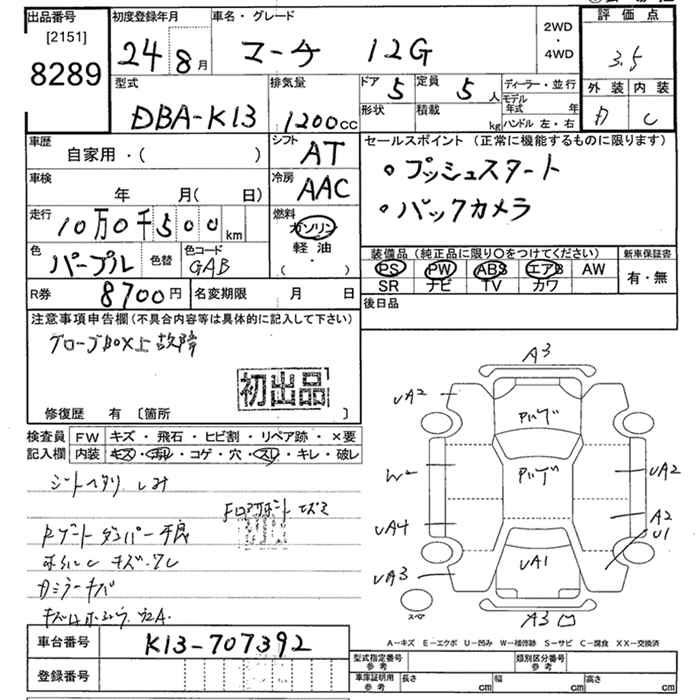 出品番号
[2151]
8289
初度登録年月
24 8月
車名・グレード
マーチ 12G
2WD
・
4WD
評価点
3.5
外装 内装
C
型式
DBA-K13
排気量
1200cc
ドア 5
定員 5人
ディーラー・並行
モデル年式 年
形状
積載 kg
ハンドル 左・右
車歴
自家用・( )
シフト AT
セールスポイント (正常に機能するものに限ります)
。プッシュスタート
。バックカメラ
車検
年 月( 日)
冷房 AAC
走行
10万0千500km
燃料
ガソリン
軽油
・
( )
色
パープル
色替
色コード
GAB
装備品 (純正品に限り〇をつけてください)
新車保証書
PS PW ABS エアB AW
SR ナビ TV カワ
有・無
R券 8700円
名変期限 月 日
後日品
注意事項申告欄(不具合内容等は具体的に記入して下さい)
グローブBOX上故障
初出品
修復歴 有 [箇所 ]
検査員 FW キズ・飛石・ヒビ割・リペア跡・×要
記入欄 内装 キズ・ヨゴレ・コゲ・穴・スレ・キレ・破レ
シートヘタリ シミ
Rゲートダンパー不良
A3
UA2
W2
UA4
UA3
UA2
A2
U1
UA1
A3
スペア
A-キズ E-エクボ U-凹み W-補修跡 S-サビ C-腐食 XX-交換済
車台番号 K13-707392
登録番号
型式指定番号 参考
類別区分番号 参考
車庫証明用 参考
長さ cm
幅 cm
高さ cm